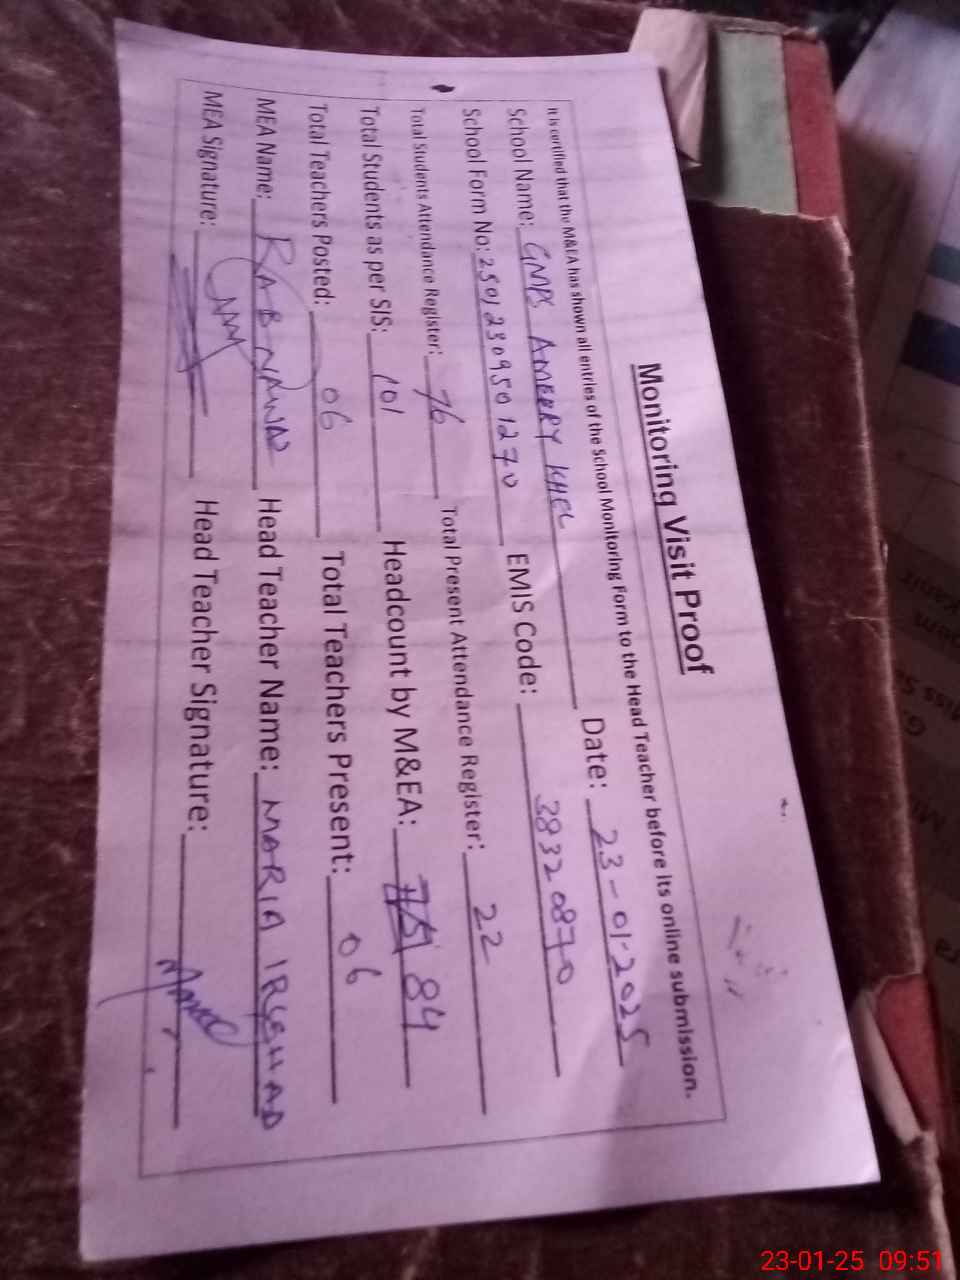 Monitoring Visit Proof
It is certified that the M&EA has shown all entries of the School Monitoring Form to the Head Teacher before its online submission.
School Name: GMPS AMEERY KHEL Date: 23-01-2025
School Form No: 25012309501270 EMIS Code: 38320870
Total Students Attendance Register: 76 Total Present Attendance Register: 22
Total Students as per SIS: 101 Headcount by M&EA: 84
Total Teachers Posted: 06 Total Teachers Present: 06
MEA Name: RAB NAWAZ Head Teacher Name: MARIA IRSHAD
MEA Signature: Head Teacher Signature:
23-01-25 09:51